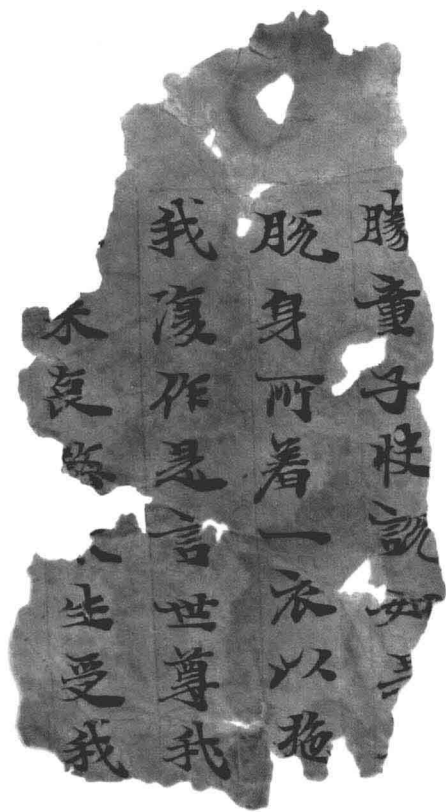 勝童子快說如
脫身所着一衣以施
我復作是言世尊我
哀愍生受我